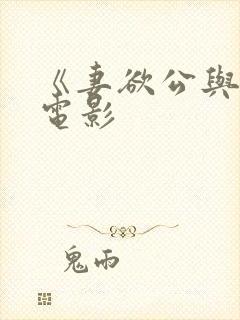 《妻欲公與
電影
鬼雨